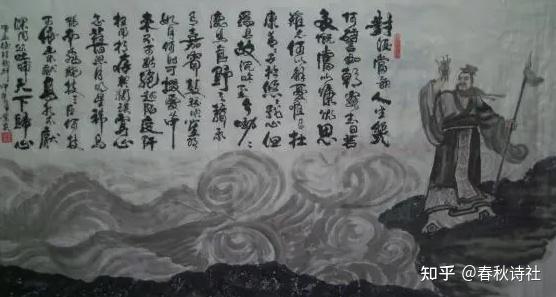 對酒當歌人生幾
何譬如朝露去日苦
多慨當以慷思
難忘何以解憂唯有杜
康青青子衿悠悠我心但
爲君故沉吟至今呦呦
鹿鳴食野之蘋我
有嘉賓鼓瑟吹笙
如月何時可掇憂從中
來不可斷絕越陌度阡
枉用相存契闊談讌心
念舊恩月明星稀烏
鵲南飛繞樹三匝何枝
可依
深周公吐哺天下歸心
知乎 @春秋诗社